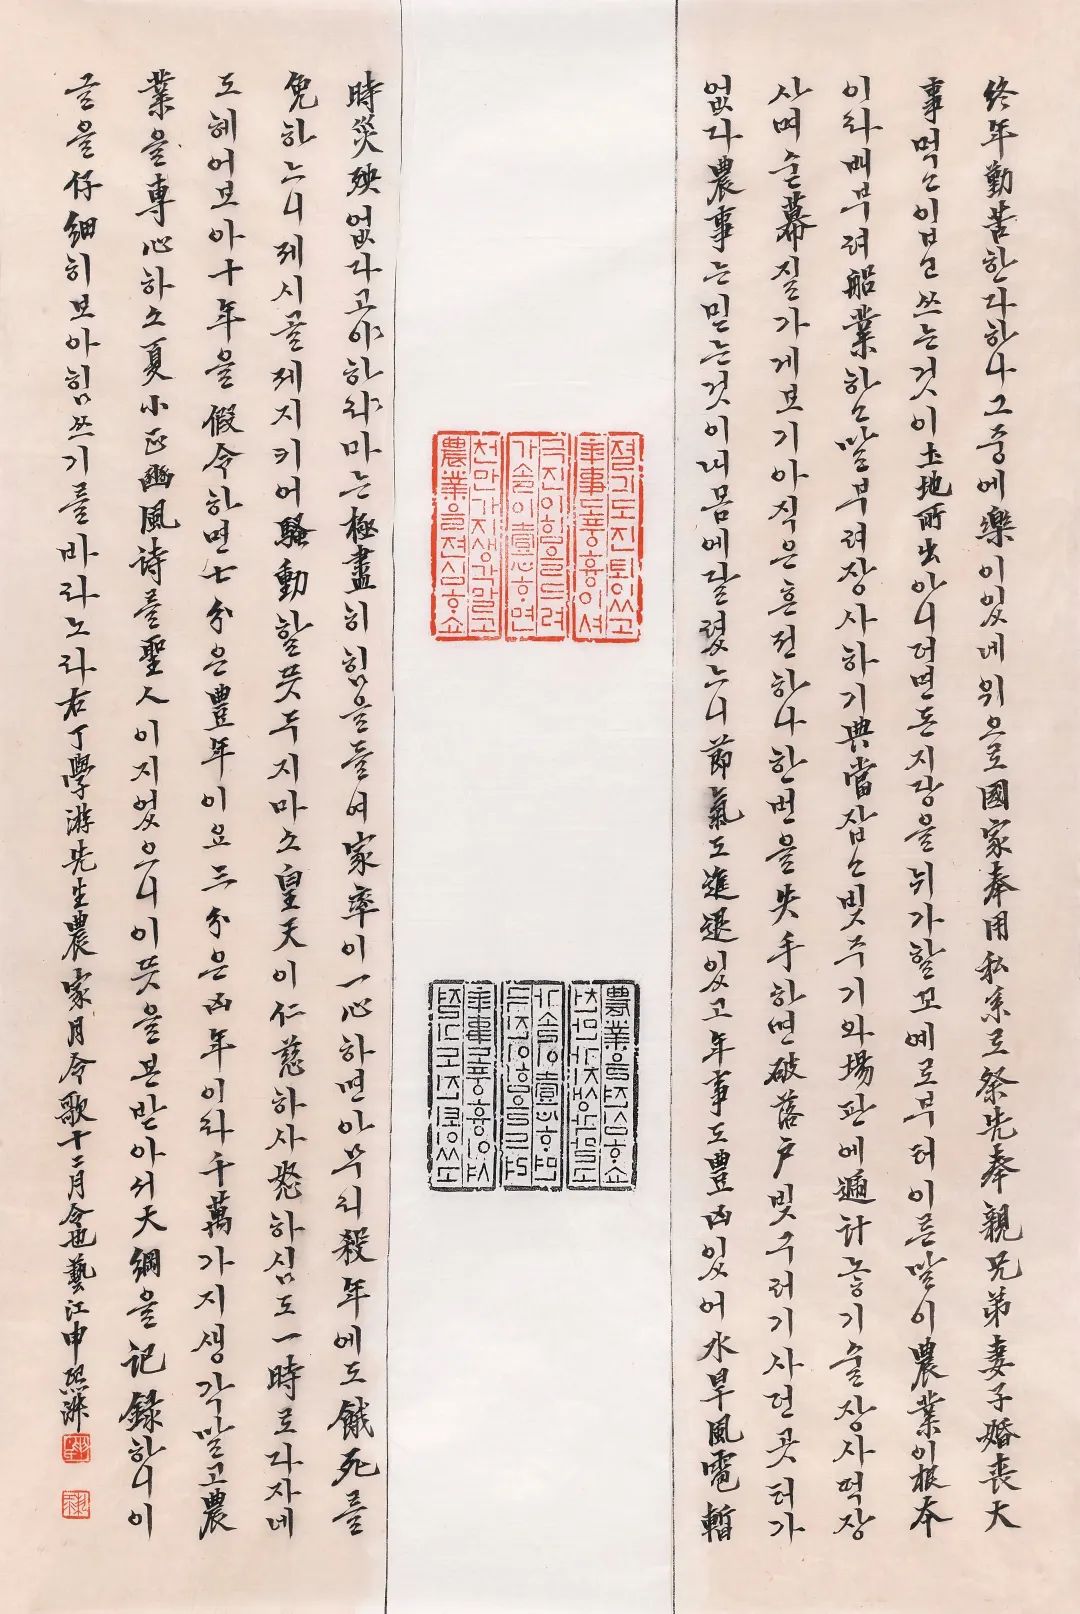 終年勤苦한다하나그중에樂이있네위으로國家奉用私系로祭先奉親兄弟妻子婚喪大
事먹고입고쓰는것이土地所出아니더면돈지당을뉘가할꼬예로부터이른말이農業이根本
이라배부려船業하고말부려장사하기典當잡고빚주기와場판에遞計놓기술장사떡장
사며술幕질가게보기아직은흔전하나한번을失手하면破落戶빚구러기사던곳터가
없다農事는믿는것이내몸에달렸느니節氣도進退있고年事도豊凶있어水旱風雹暫
절긔도진퇴잇고
年事도풍흉이셔
극진이힘을드려
가솔이壹心ᄒᆞ면
천만가지생각말고
農業을젼심ᄒᆞ쇼
時災殃없다고야하랴마는極盡히힘을들여家率이一心하면아무리殺年에도餓死를
免하느니제시골제지키어騷動할뜻두지마소皇天이仁慈하사怒하심도一時로다자네
도헤어보아十年을假令하면七分은豊年이요三分은凶年이라千萬가지생각말고農
業을專心하소夏小正豳風詩를聖人이지었으니이뜻을본받아서大綱을記錄하니이
글을仔細히보아힘쓰기를바라노라右丁學游先生農家月令歌十二月令也藝江申熙淑